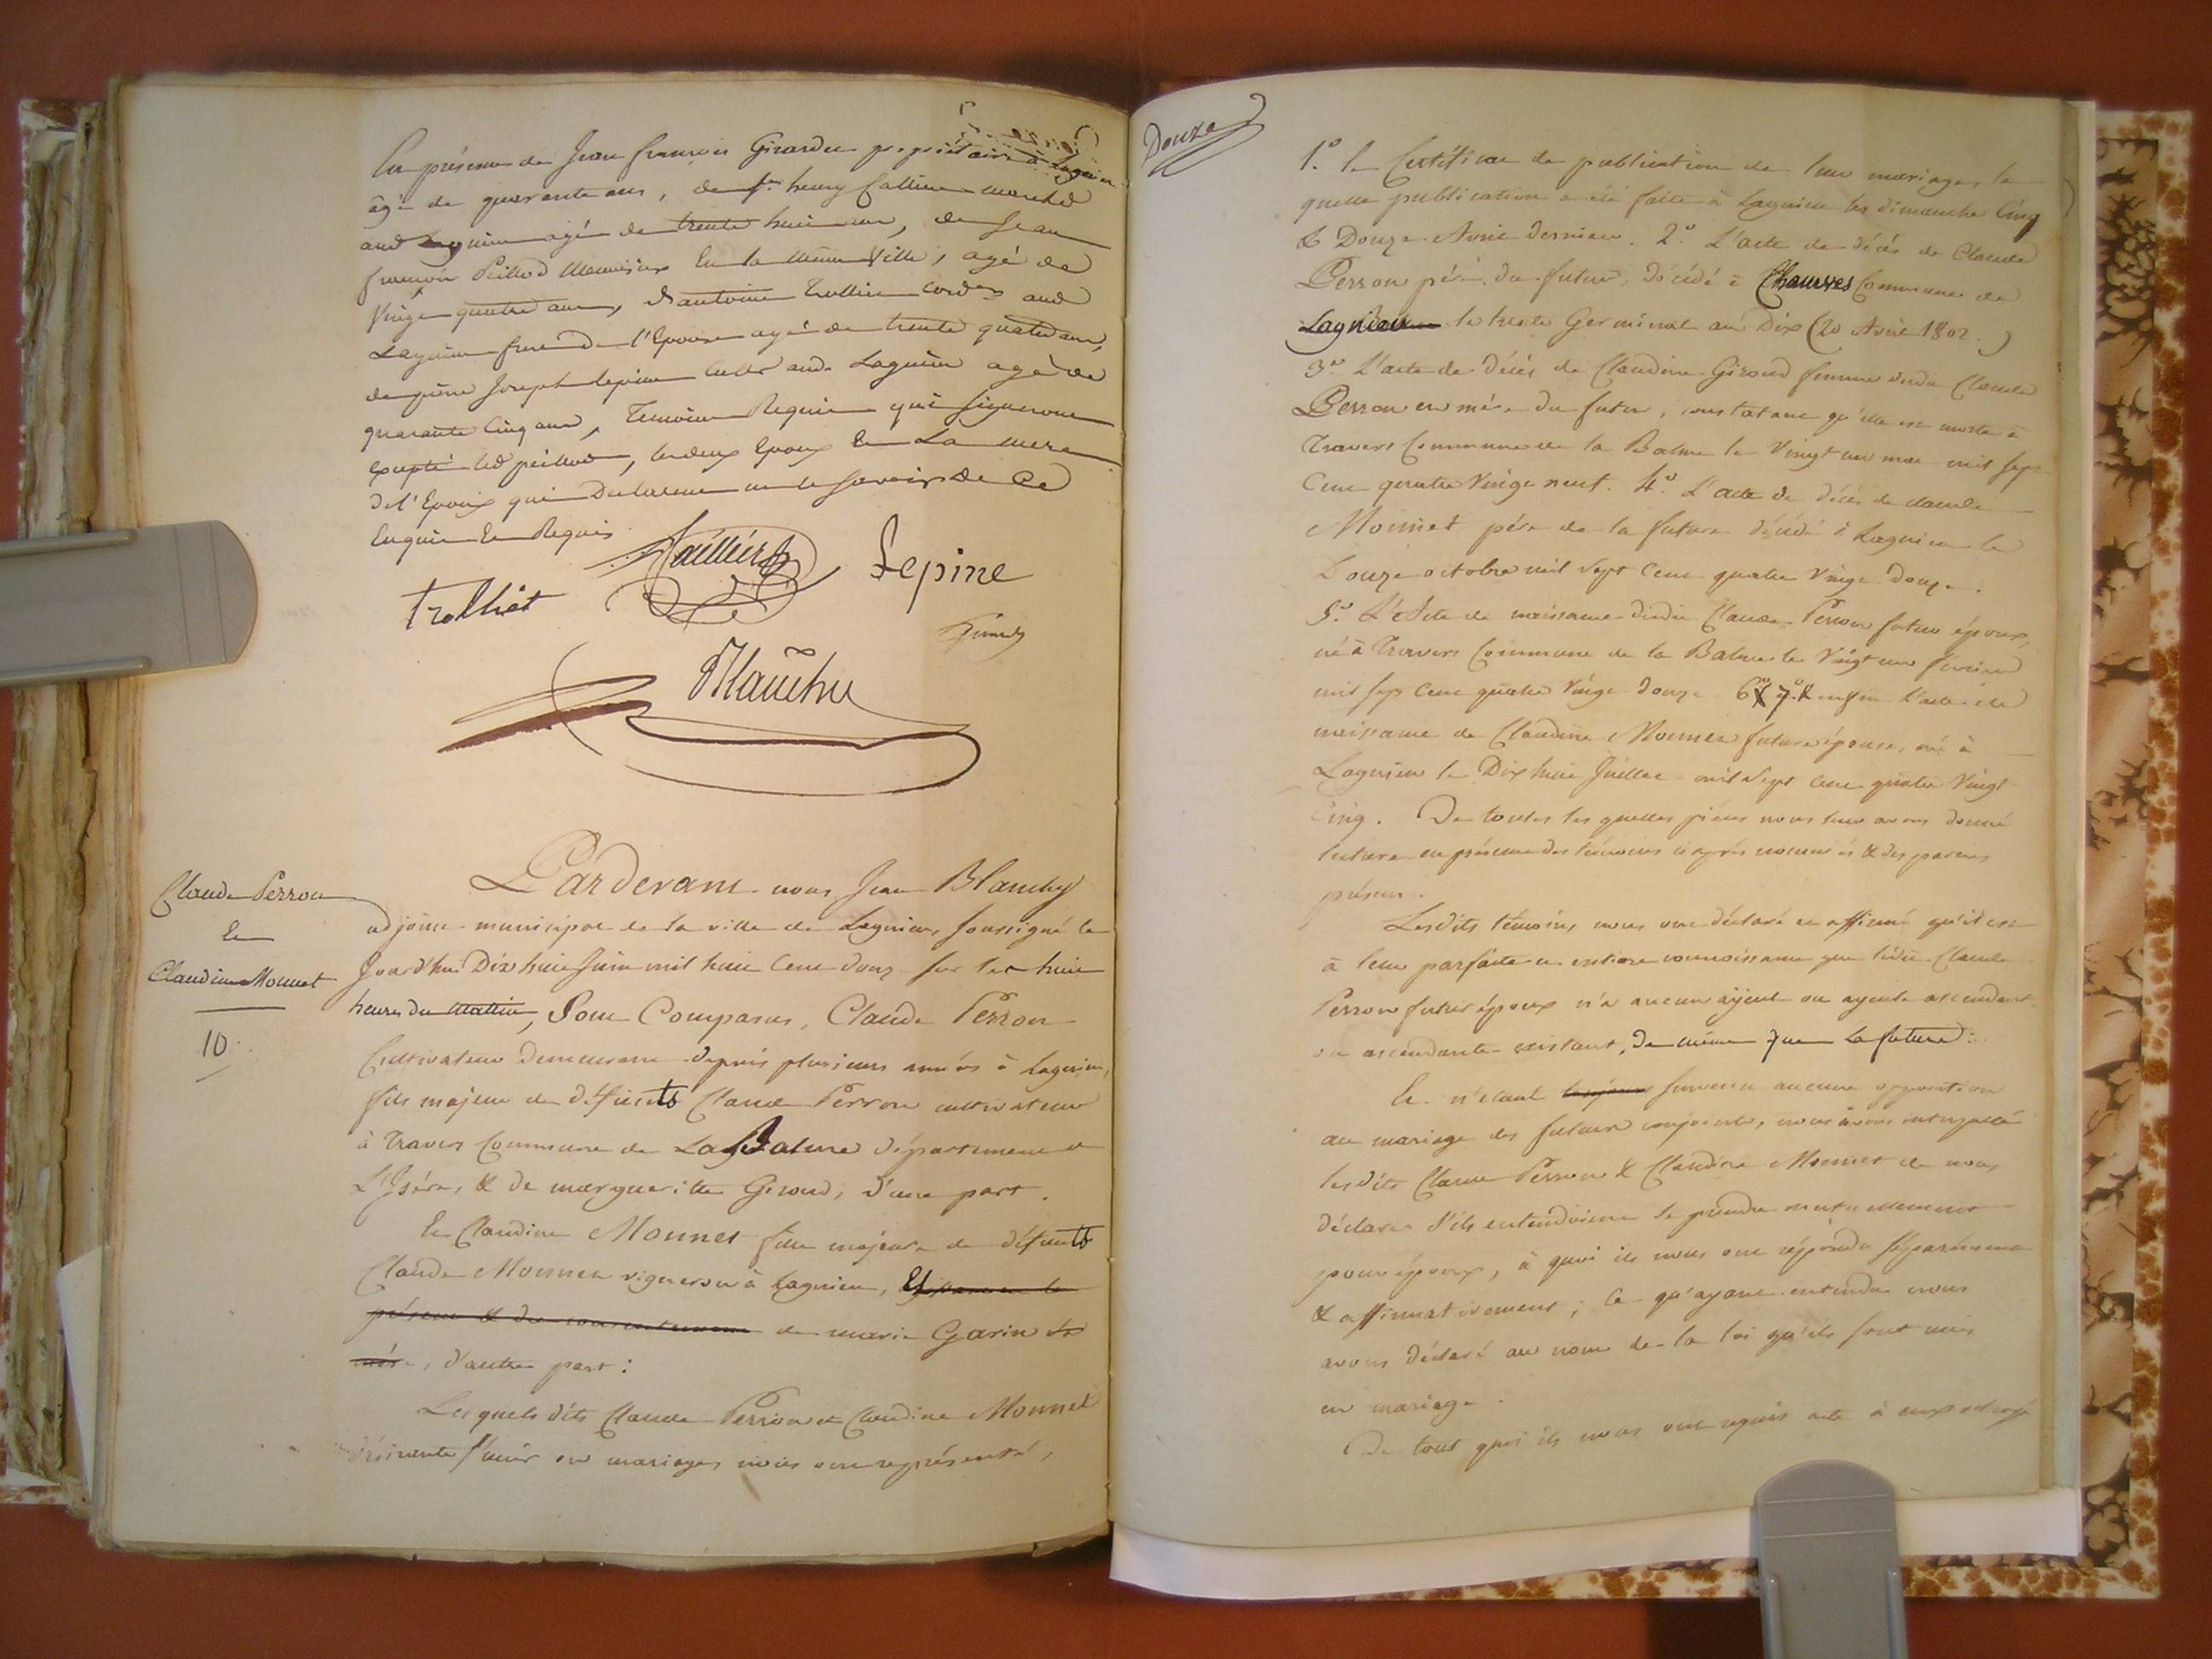 En présence de Jean françois Girardin propriétaire à Lagnieu
âgé de quarante ans, de henry marchd
aud Lagnieu agé de trente huit ans, de Jean
françois Peillod Menuisier En la même Ville, agé de
Vingt quatre ans, d'antoine Trollier cord.er aud
Lagnieu frere de l'Epouse agé de trente quatre ans,
de pierre Joseph Lepine aud. Lagnieu agé de
quarante Cinq ans, Temoins Requis qui signeront
excepté led peillod, les deux Epoux Et La mere
de l'Epoux qui Declarent ne le savoir de Ce
Enquis Et Requis
Lepine
Trolliet
Blanchy
Claude Perron
Et
Claudine Monnet
10.
Pardevant nous Jean Blanchy
adjoint municipal de la ville de Lagnieu, soussigné le
Jourd'hui Dix huit Juin mil huit Cent douze sur les huit
heures du Matin, Sont Comparus, Claude Perron
Cultivateur demeurant depuis plusieurs années à Lagnieu,
fils majeur de défunts Claude Perron cultivateur
à Travers Commune de La Balme département de
L'Isére, & de margueritte Giroud, d'une part.
Et Claudine Monnet fille majeure de défunts
Claude Monnet vigneron à Lagnieu, Et
présence & du consentement de marie Garin sa
mére, d'autre part:
Lesquels dits Claude Perron et Claudine Monnet
désirants s'unir en mariage, nous ont représenté,
Douze
1.° le Certificat de publication de leur mariage, la
quelle publication a été faite à Lagnieu les dimanche Cinq
& Douze Avril dernier. 2.° L'acte de décés de Claude
Perron pére du futur, décédé à Chauves Commune de
Lagnieu le trente Germinal an Dix (20 Avril 1802.)
3.° L'acte de décés de Claudine Giroud femme dudit Claude
Perron et mére du futur, constatant qu'elle est morte à
Travers Commune de la Balme le Vingt un mai mil sept
Cent quatre Vingt neuf. 4.° L'acte de décés de claude
Monnet pére de la future décédé à Lagnieu le
Douze octobre mil sept Cent quatre Vingt Douze.
5.° L'Acte de naissance dudit Claude Perron futur époux,
né à Travers Commune de la Balme le Vingt un février
mil sept Cent quatre Vingt douze 6.° & 7.° & enfin L'acte de
naissance de Claudine Monnet future épouse, née à
Lagnieu le Dix huit Juillet mil sept Cent quatre Vingt
Cinq. De toutes les quelles piéces nous leur avons donné
lecture en présence des témoins ci aprés nommés & des parens
présens.
Lesdits témoins, nous ont déclaré et affirmé qu'il est
à leur parfaite et entiere connoissance que ledit Claude
Perron futur époux n'a aucun ayeul ou ayeule ascendant
ou ascendante existant, de même que La future:
Et n'étant survenu aucune opposition
au mariage des futurs conjoints, nous avons interpellé
lesdits Claude Perron & Claudine Monnet de nous
déclarer s'ils entendoient se prendre mutuellement
pour époux, à quoi ils nous ont répondu séparément
& affirmativement; Ce qu'ayant entendu nous
avons déclaré au nom de la loi qu'ils sont unis
en mariage.
De tout quoi ils nous ont requis acte à eux octroyé